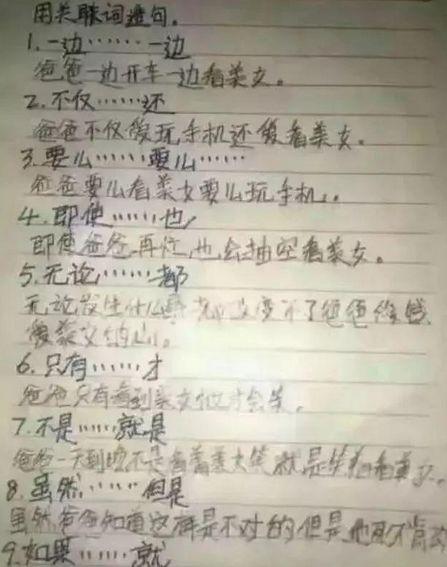 用关联词造句。
1.一边……一边
爸爸一边开车一边看美女。
2.不仅……还
爸爸不仅爱玩手机还爱看美女。
3.要么……要么……
爸爸要么看美女要么玩手机。
4.即使……也
即使爸爸再忙,也会抽空看美女。
5.无论……都
无论发生什么事都改变不了爸爸
爱美女的心。
6.只有……才
爸爸只有看到美女他才会笑。
7.不是……就是
爸爸一天到晚不是看着美女笑就是
8.虽然……但是
虽然爸爸知道这样是不对的但是他
9.如果……就